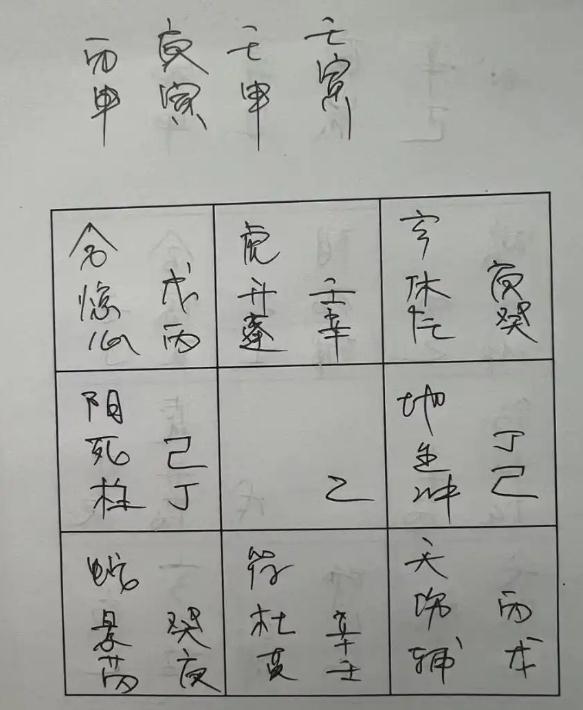 丙 庚 壬 壬
申 寅 申 寅
合
惊 戊
心 丙
虎
开 壬
蓬 辛
玄
休 庚
任 癸
阴
死 己
柱 丁
乙
地
生 丁
冲 己
蛇
景 癸
芮 庚
符
杜 辛
英 壬
天
伤 丙
辅 戊